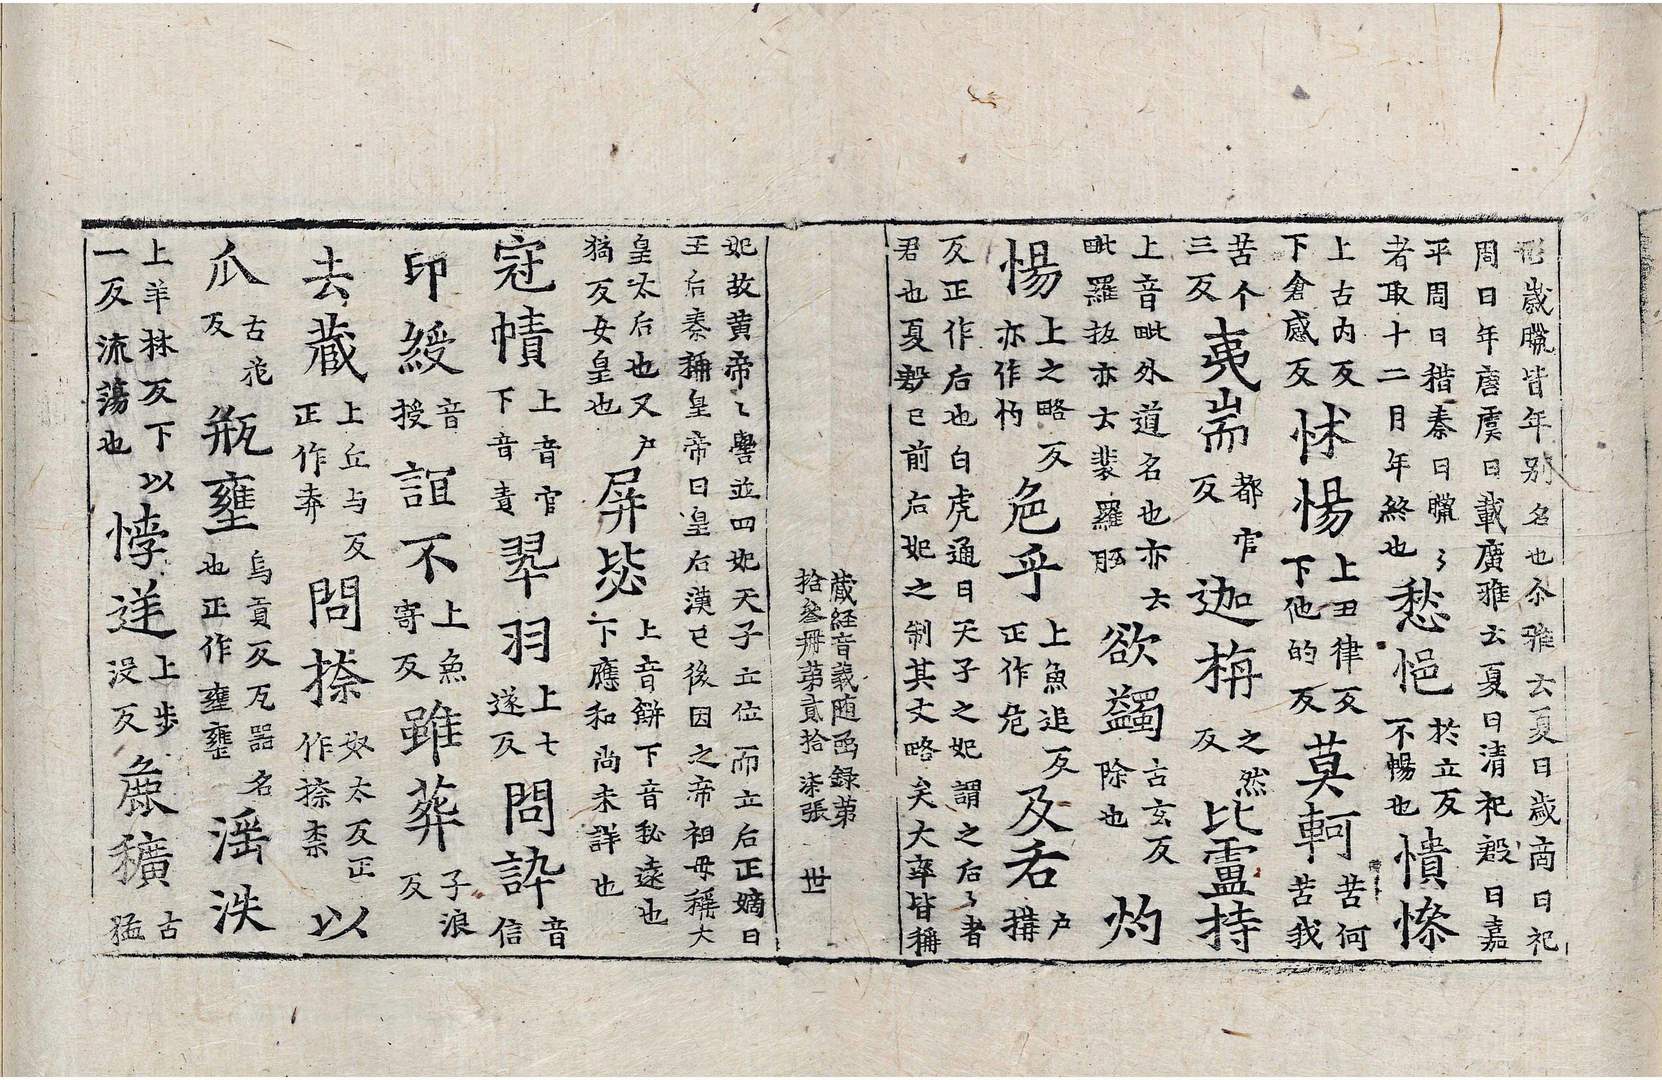 形歲臘皆年別名也尒雅云夏曰歲商曰祀
周曰年唐虞曰載廣雅云夏曰清祀殷曰嘉
平周曰䄍秦曰臘〻
者取十二月年終也
愁悒
於立反
不暢也
憒憏
上古内反
下倉感反
怵惕
上丑律反
下他的反
莫軻
苦何
苦我
苦个
三反
夷耑
都官
反
迦栴
之然
反
比盧持
上音毗外道名也亦云
毗羅抵亦云裴羅胝
欲蠲
古玄反
除也
灼
惕
上之略反
亦作灼
危乎
上魚追反
正作危
及后
户
搆
反正作后也白虎通曰天子之妃謂之后〻者
君也夏殷已前后妃之制其文略矣大率皆稱
藏経音義随函録第
拾叁冊第貳拾柒張
世
妃故黄帝〻嚳並四妃天子立位而立后正嫡曰
王后秦稱皇帝曰皇后漢已後因之帝祖母稱太
皇太后也又户
猗反女皇也
屏毖
上音餅下音秘遠也
卞應和尚未詳也
冠幘
上音官
下音責
翠羽
上七
遂反
問訷
音
信
印綬
音
授
誼不
上魚
寄反
雖葬
子浪
反
去蔵
上丘与反
正作弆
問捺
奴太反正
作捺柰
以
瓜
古花
反
瓶甕
烏貢反瓦器名
也正作罋甕
淫泆
上羊林反下以
一反流蕩也
悖逆
上步
没反
麁穬
古
猛